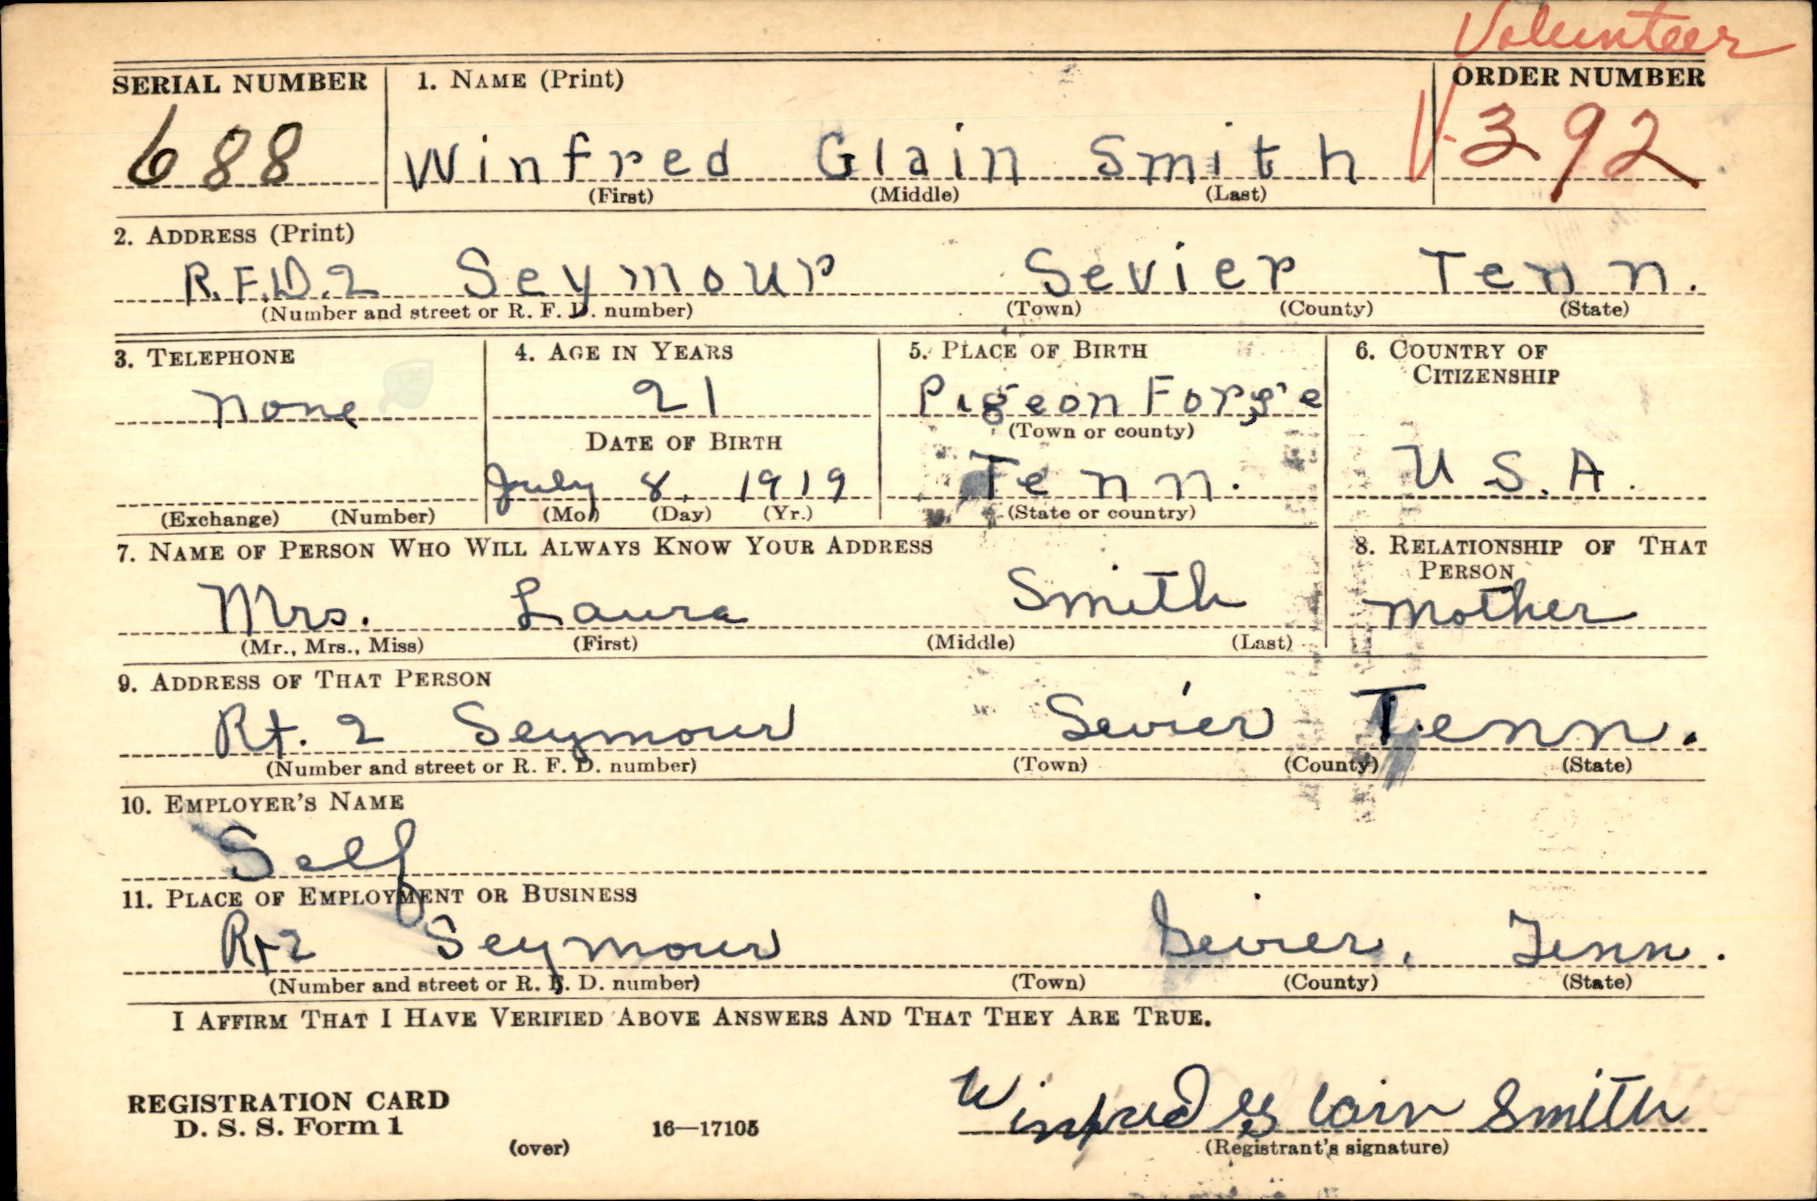 Volunteer
SERIAL NUMBER 1. NAME (Print) ORDER NUMBER
688 Winfred Glain Smith V-392
(First) (Middle) (Last)
2. ADDRESS (Print)
R.F.D.2 Seymour Sevier Tenn.
(Number and street or R. F. D. number) (Town) (County) (State)
3. TELEPHONE 4. AGE IN YEARS 5. PLACE OF BIRTH 6. COUNTRY OF
CITIZENSHIP
None 21 Pigeon Forge
DATE OF BIRTH (Town or county)
July 8, 1919 Tenn. U.S.A.
(Exchange) (Number) (Mo.) (Day) (Yr.) (State or country)
7. NAME OF PERSON WHO WILL ALWAYS KNOW YOUR ADDRESS 8. RELATIONSHIP OF THAT
PERSON
Mrs. Laura Smith Mother
(Mr., Mrs., Miss) (First) (Middle) (Last)
9. ADDRESS OF THAT PERSON
Rt. 2 Seymour Sevier Tenn.
(Number and street or R. F. D. number) (Town) (County) (State)
10. EMPLOYER'S NAME
Self
11. PLACE OF EMPLOYMENT OR BUSINESS
Rt 2 Seymour Sevier, Tenn.
(Number and street or R. F. D. number) (Town) (County) (State)
I AFFIRM THAT I HAVE VERIFIED ABOVE ANSWERS AND THAT THEY ARE TRUE.
REGISTRATION CARD
D. S. S. Form 1 16—17105 Winfred Glain Smith
(over) (Registrant's signature)